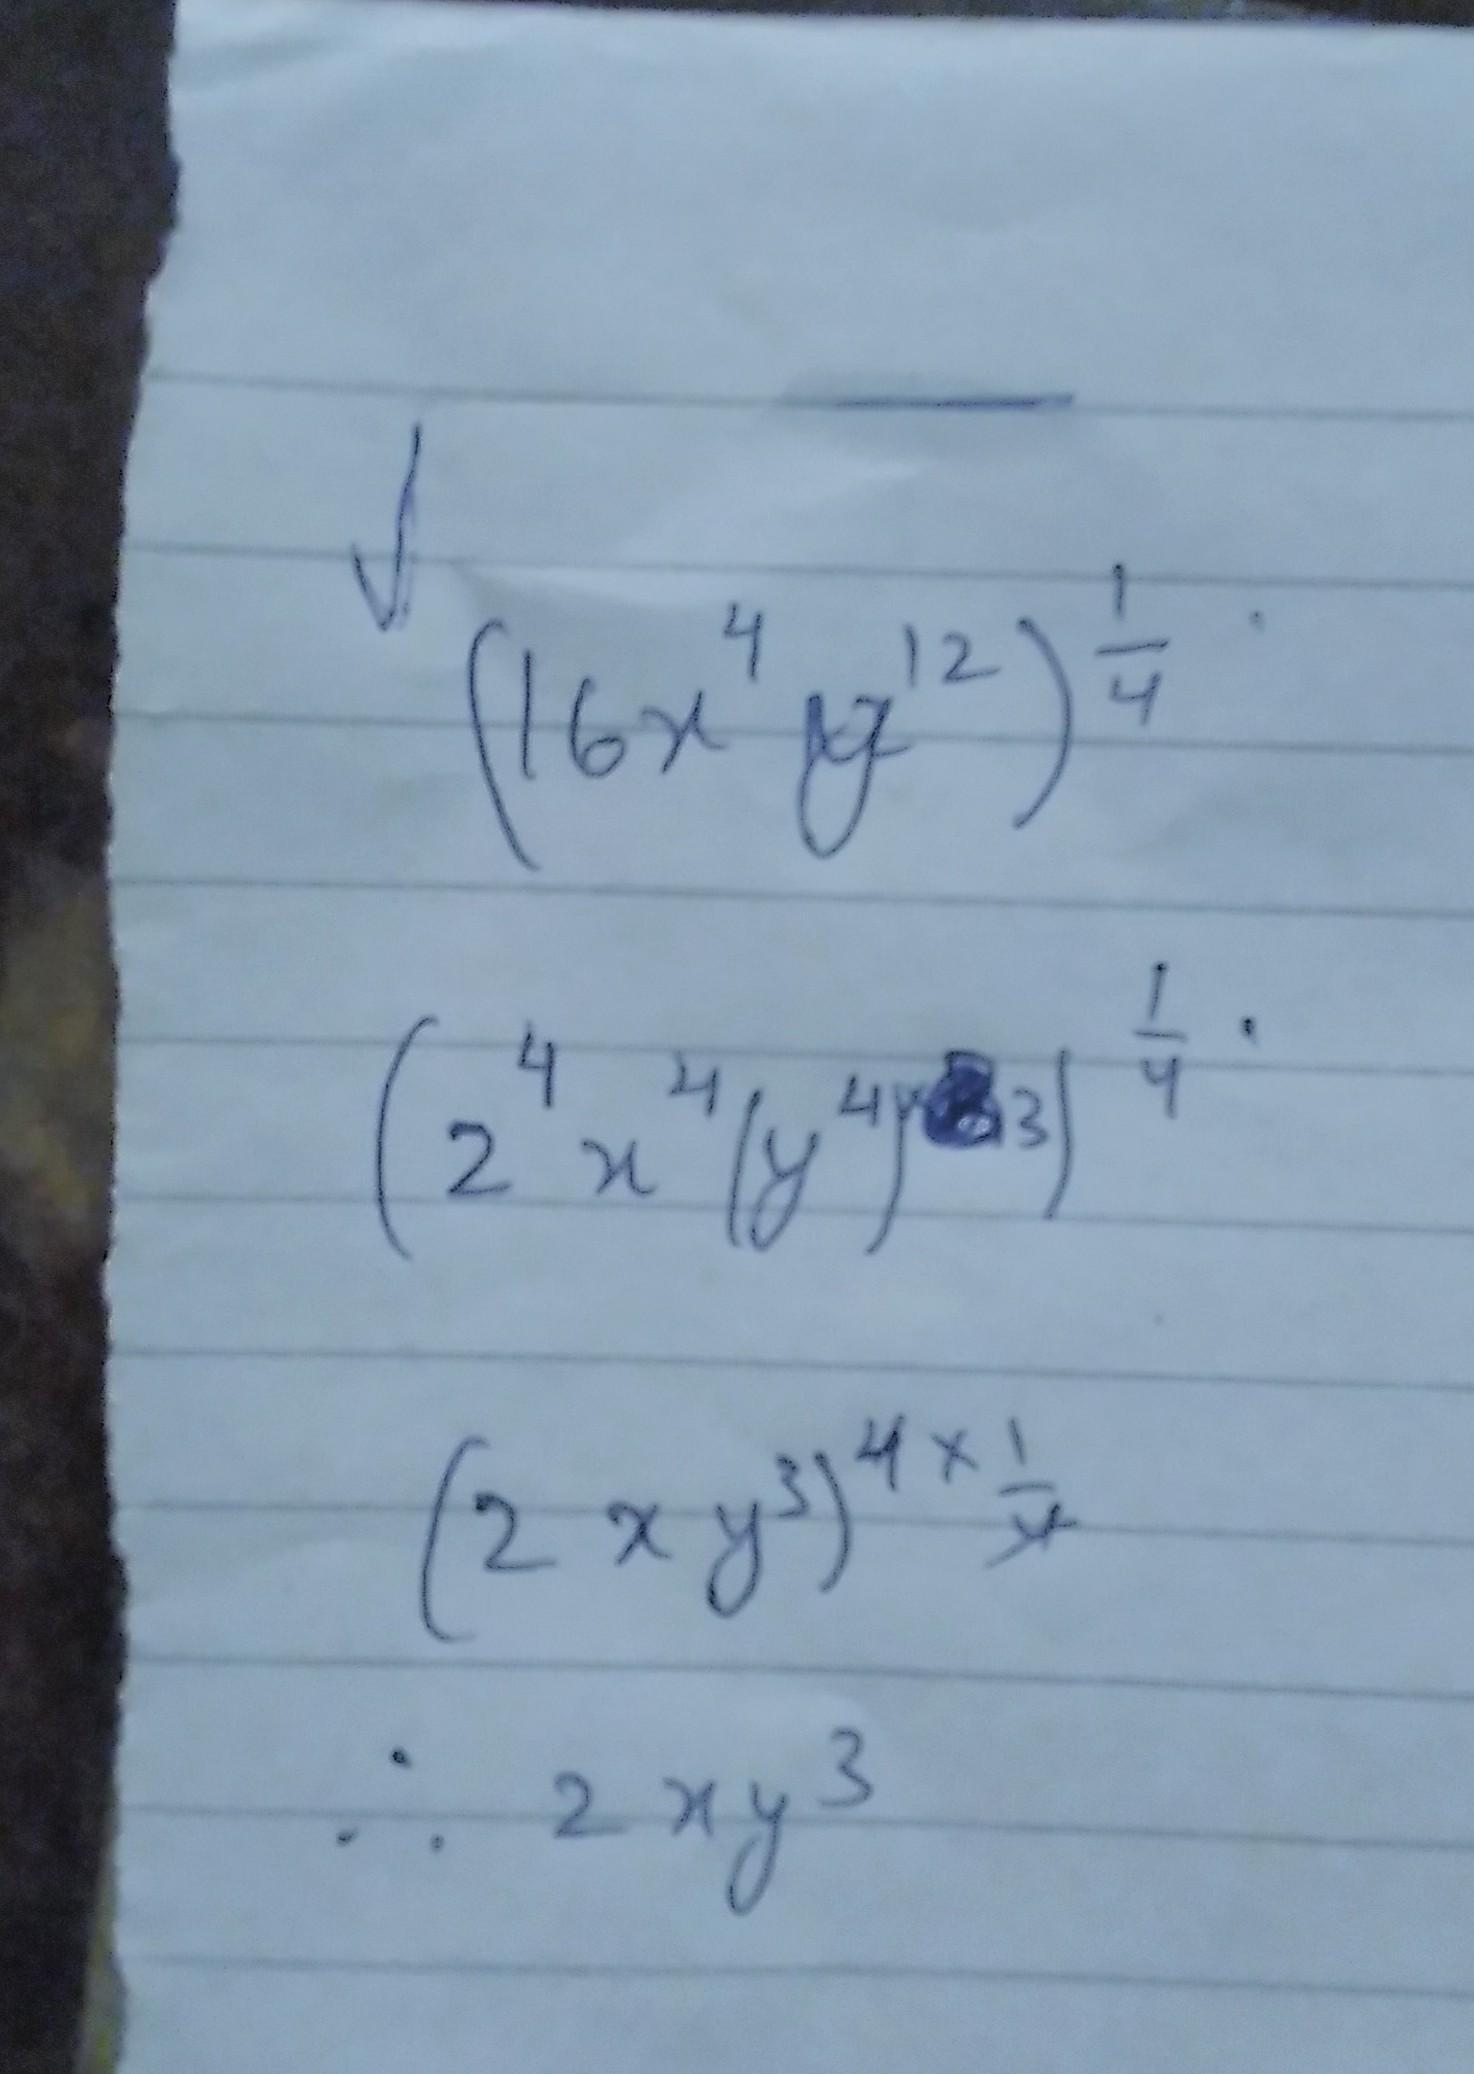 (16x⁴y¹²)^(1/4)
(2⁴x⁴(y⁴)³)^(1/4)
(2xy³)^(4×1/4)
∴ 2xy³